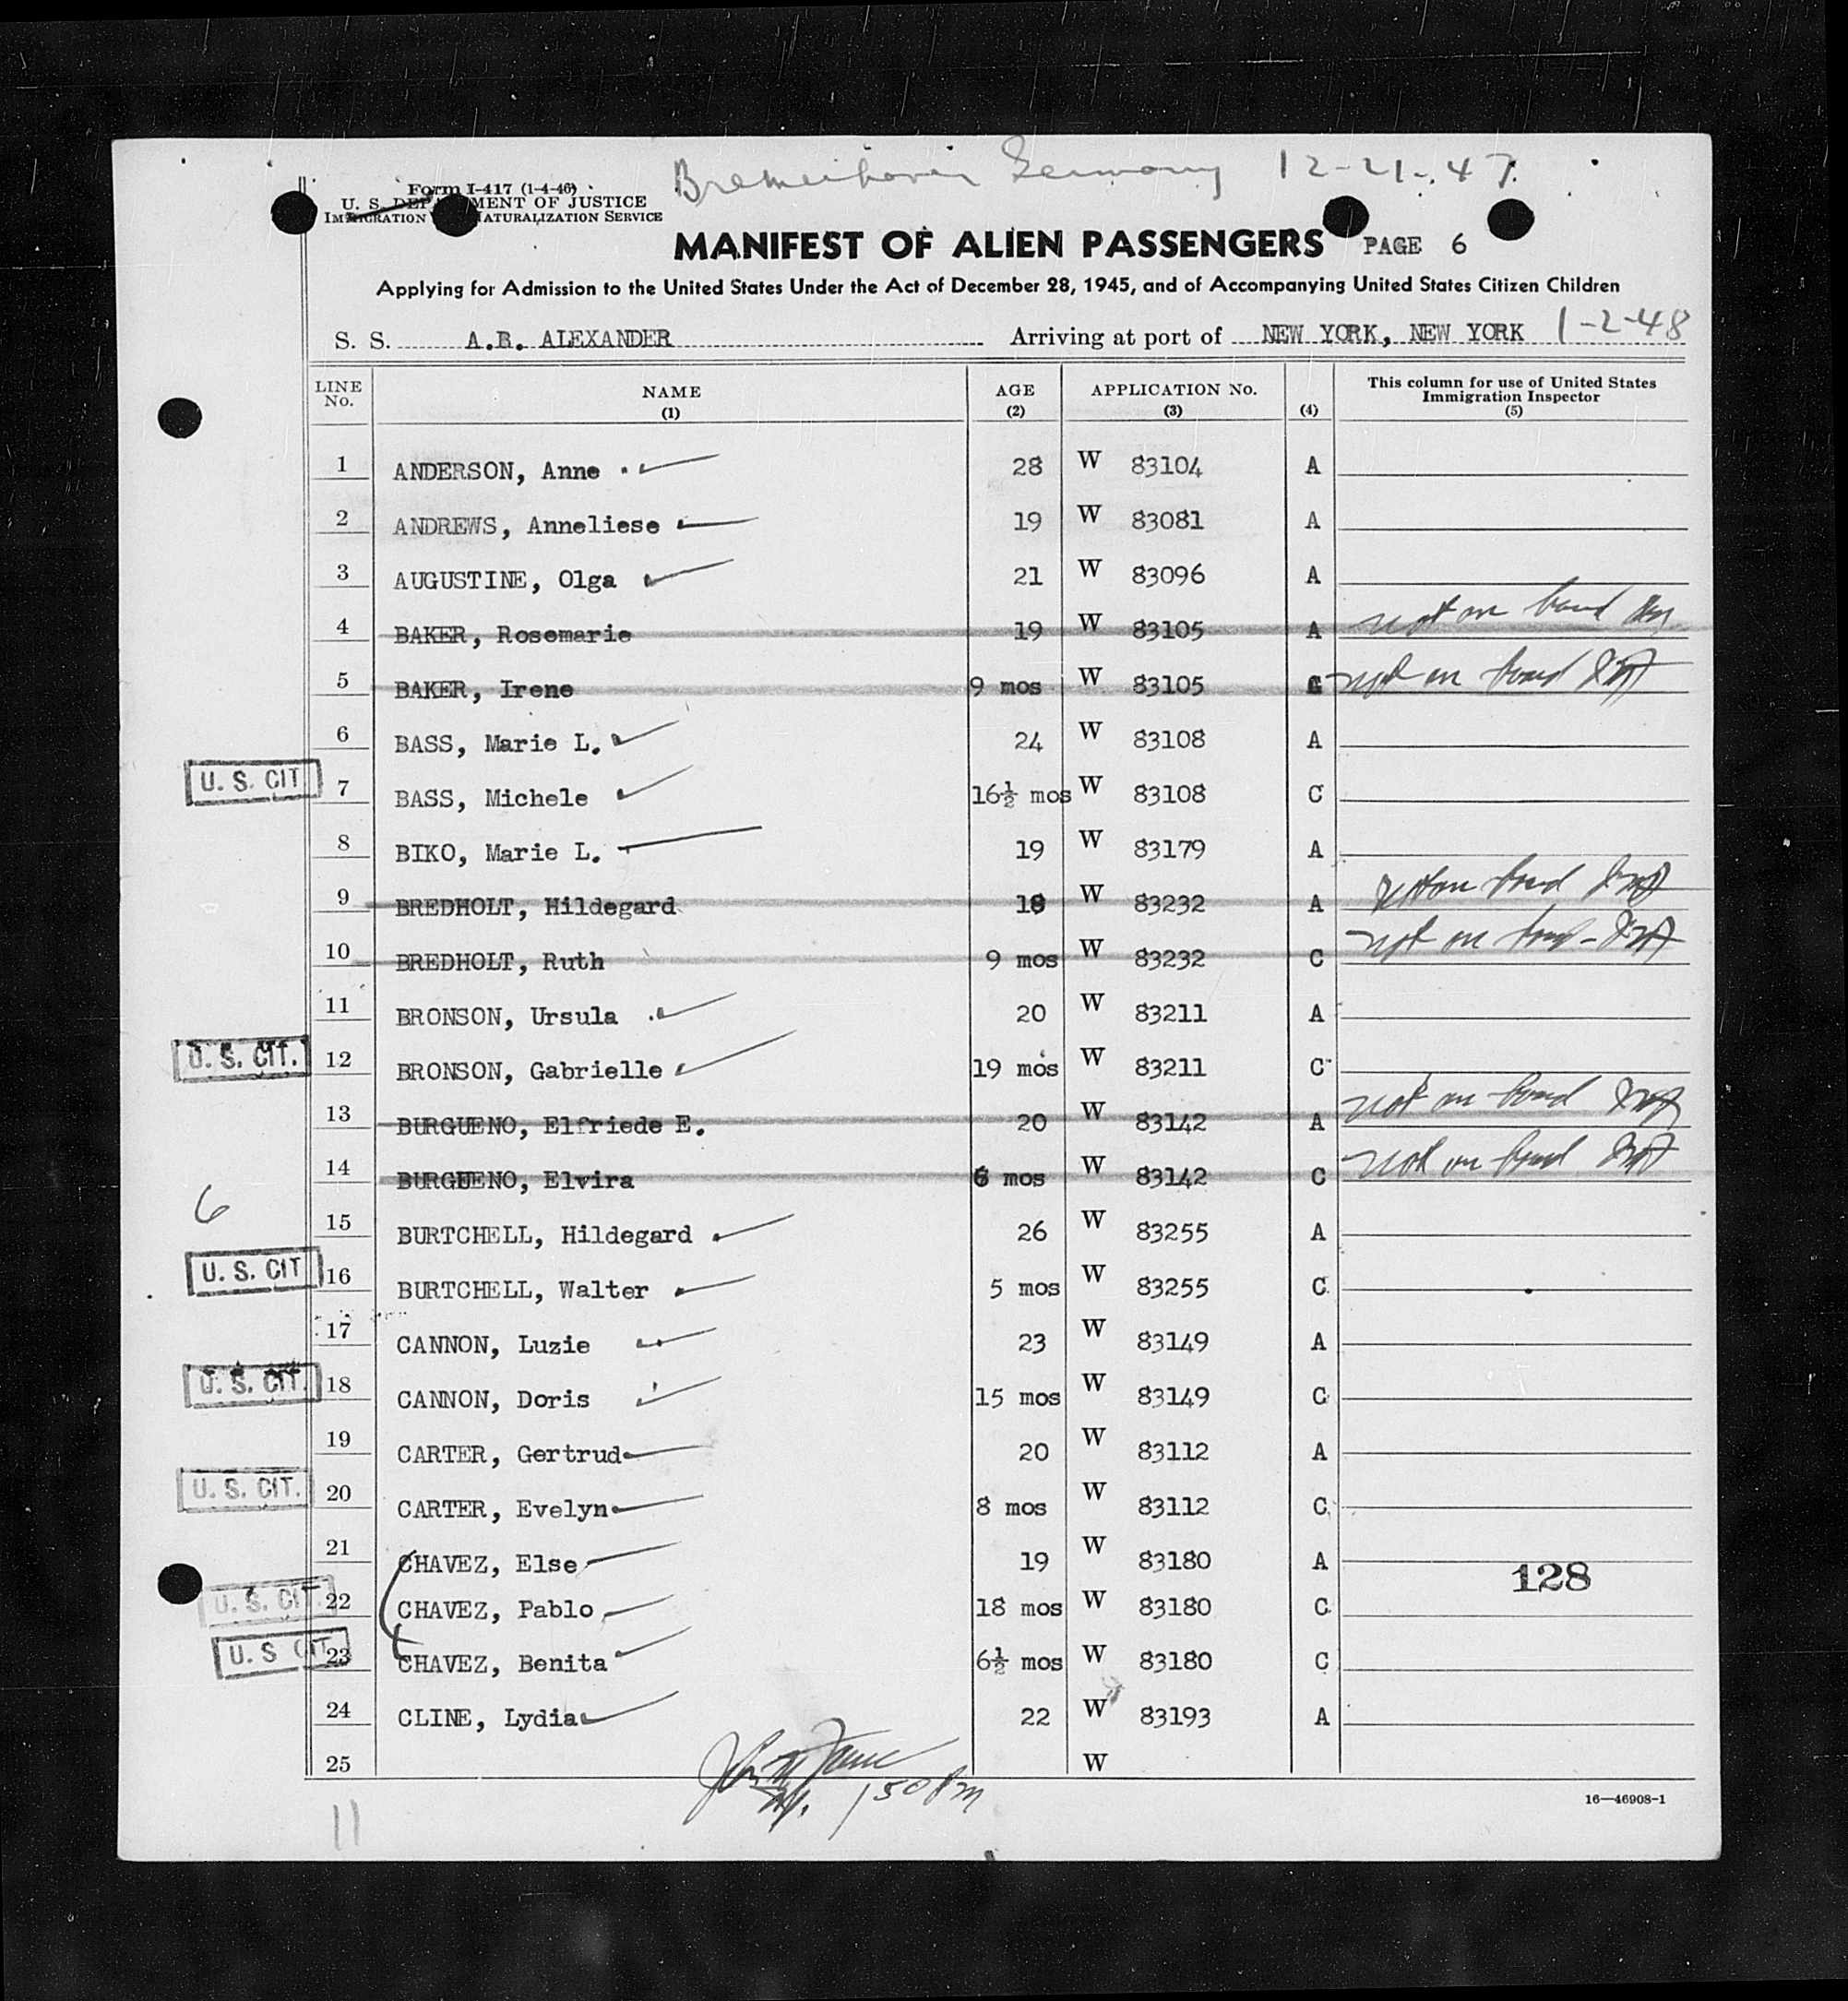 Bremerhaven Germany 12-21-47
Form I-417 (1-4-46)
U. S. DEPARTMENT OF JUSTICE
IMMIGRATION NATURALIZATION SERVICE
MANIFEST OF ALIEN PASSENGERS PAGE 6
Applying for Admission to the United States Under the Act of December 28, 1945, and of Accompanying United States Citizen Children
S. S. A.B. ALEXANDER Arriving at port of NEW YORK, NEW YORK 1-2-48
LINE No. NAME (1) AGE (2) APPLICATION No. (3) (4) This column for use of United States Immigration Inspector (5)
1 ANDERSON, Anne 28 W 83104 A
2 ANDREWS, Anneliese 19 W 83081 A
3 AUGUSTINE, Olga 21 W 83096 A
4 BAKER, Rosemarie 19 W 83105 A not on board
5 BAKER, Irene 9 mos W 83105 C not on board
6 BASS, Marie L. 24 W 83108 A
U. S. CIT 7 BASS, Michele 16½ mos W 83108 C
8 BIKO, Marie L. 19 W 83179 A
9 BREDHOLT, Hildegard 18 W 83232 A not on board
10 BREDHOLT, Ruth 9 mos W 83232 C not on board
11 BRONSON, Ursula 20 W 83211 A
U. S. CIT. 12 BRONSON, Gabrielle 19 mos W 83211 C
13 BURGUENO, Elfriede E. 20 W 83142 A not on board
14 BURGUENO, Elvira 6 mos W 83142 C not on board
6
15 BURTCHELL, Hildegard 26 W 83255 A
U. S. CIT 16 BURTCHELL, Walter 5 mos W 83255 C
17 CANNON, Luzie 23 W 83149 A
U. S. CIT. 18 CANNON, Doris 15 mos W 83149 C
19 CARTER, Gertrud 20 W 83112 A
U. S. CIT. 20 CARTER, Evelyn 8 mos W 83112 C
21 CHAVEZ, Else 19 W 83180 A
128
U. S. CIT. 22 CHAVEZ, Pablo 18 mos W 83180 C
U. S CIT. 23 CHAVEZ, Benita 6½ mos W 83180 C
24 CLINE, Lydia 22 W 83193 A
25 W
150 PM
16—46908-1
11